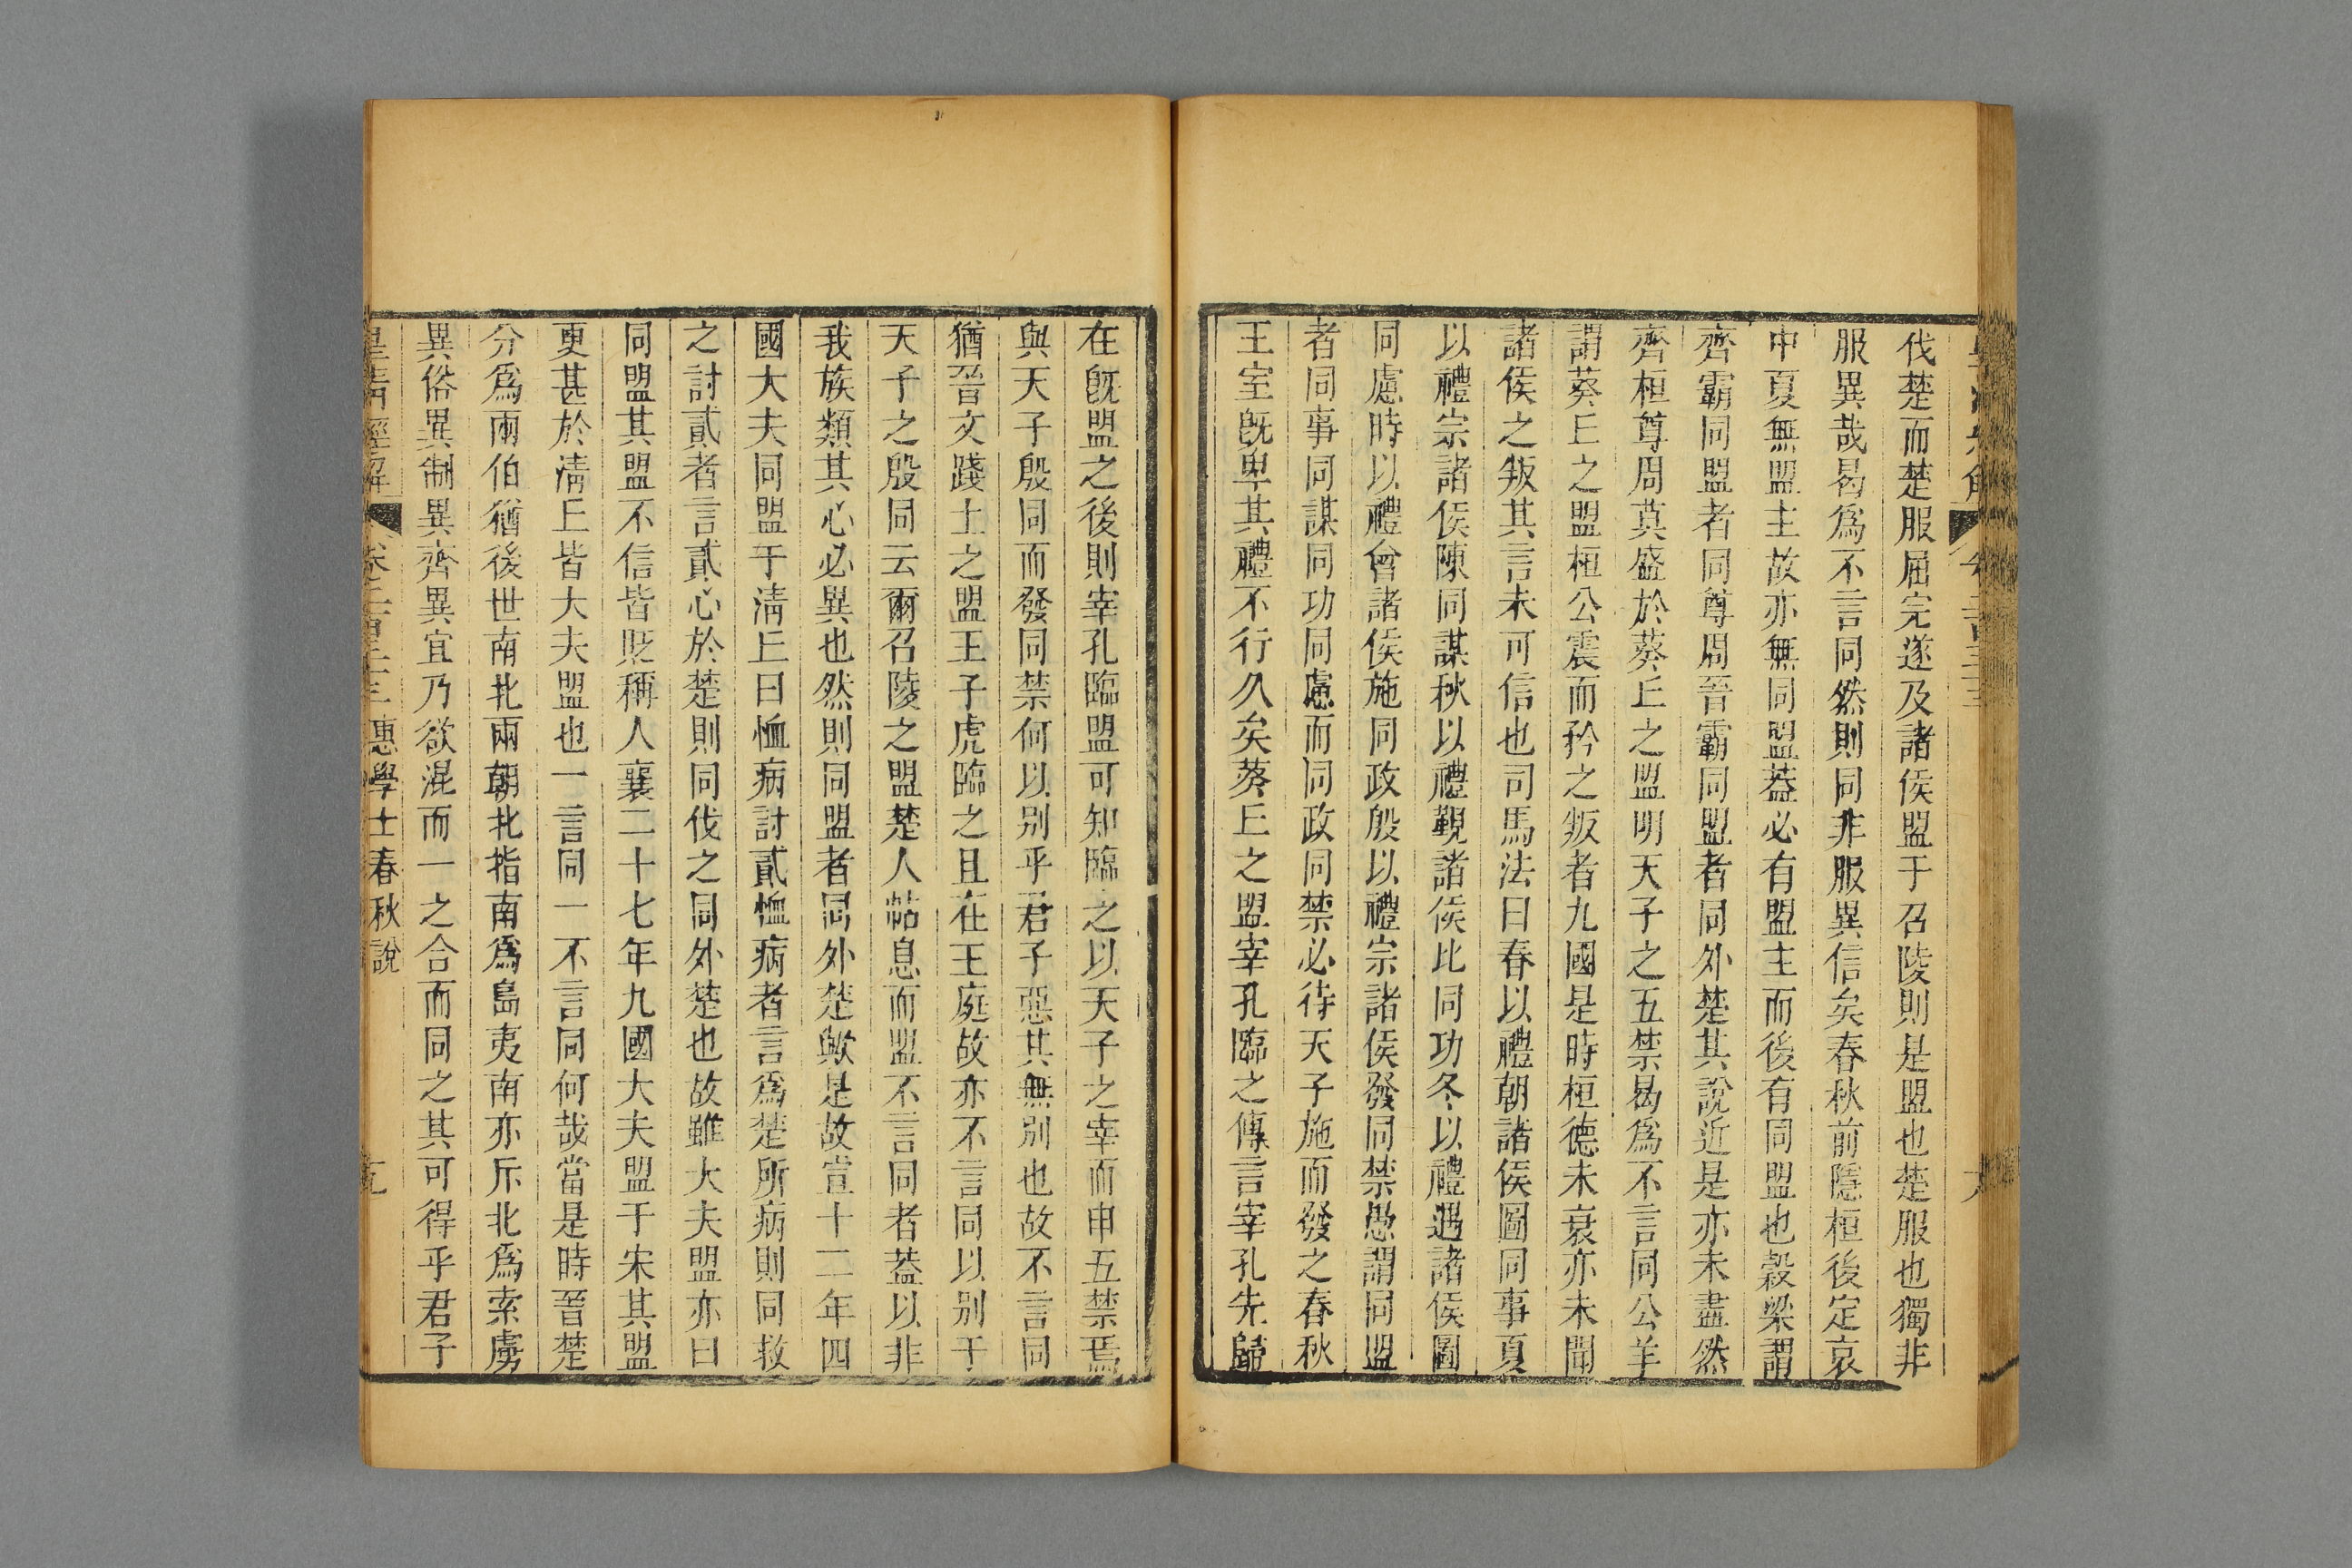 伐楚而楚服屈完遂及諸侯盟于召陵則是盟也楚服也獨非
服異哉曷爲不言同然則同非服異信矣春秋前隱桓後定哀
中夏無盟主故亦無同盟葢必有盟主而後有同盟也穀梁謂
齊霸同盟者同尊周晉霸同盟者同外楚其說近是亦未盡然
齊桓尊周莫盛於葵丘之盟明天子之五禁曷爲不言同公羊
謂葵丘之盟桓公震而矜之叛者九國是時桓德未衰亦未聞
諸侯之叛其言未可信也司馬法曰春以禮朝諸侯圖同事夏
以禮宗諸侯陳同謀秋以禮覲諸侯比同功冬以禮遇諸侯圖
同慮時以禮會諸侯施同政殷以禮宗諸侯發同禁愚謂同盟
者同事同謀同功同慮而同政同禁必待天子施而發之春秋
王室旣卑其禮不行久矣葵丘之盟宰孔臨之傳言宰孔先歸
在旣盟之後則宰孔臨盟可知臨之以天子之宰而申五禁焉
與天子殷同而發同禁何以別乎君子惡其無別也故不言同
猶晉文踐土之盟王子虎臨之且在王庭故亦不言同以別于
天子之殷同云爾召陵之盟楚人帖息而盟不言同者葢以非
我族類其心必異也然則同盟者同外楚歟是故宣十二年四
國大夫同盟于淸丘曰恤病討貳恤病者言爲楚所病則同救
之討貳者言貳心於楚則同伐之同外楚也故雖大夫盟亦曰
同盟其盟不信皆貶稱人襄二十七年九國大夫盟于宋其盟
更甚於淸丘皆大夫盟也一言同一不言同何哉當是時晉楚
分爲兩伯猶後世南北兩朝北指南爲島夷南亦斥北爲索虜
異俗異制異齊異宜乃欲混而一之合而同之其可得乎君子
皇淸經解 卷二百三十三 惠學士春秋說